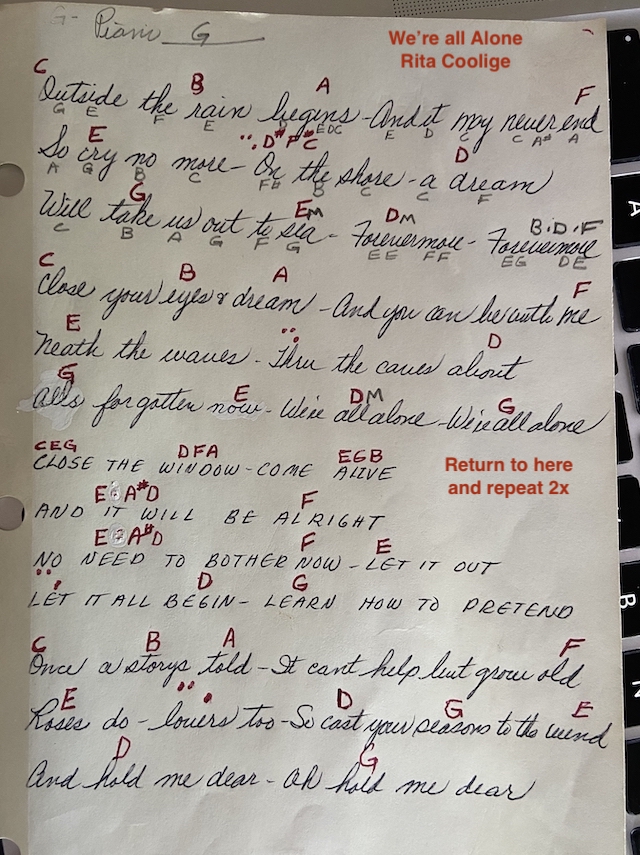 G- Piano G
We're all Alone
Rita Coolige
C B A F
Outside the rain begins - And it may never end
G E F E D EDC E D C C A# A
E D# F# C D
So cry no more - On the shore - a dream
A G B C F# B C C F
G Em Dm B.D.F
Will take us out to sea - Forevermore - Forevermore
C B A G F G EE FF EG DE
C B A F
Close your eyes & dream - And you can be with me
E D
Neath the waves - Thru the caves about
G E DM G
All's forgotten now - We're all alone - We're all alone
CEG DFA EGB
CLOSE THE WINDOW - COME ALIVE
Return to here
and repeat 2x
E A#D F
AND IT WILL BE ALRIGHT
E A#D F E
NO NEED TO BOTHER NOW - LET IT OUT
D G
LET IT ALL BEGIN - LEARN HOW TO PRETEND
C B A F
Once a storys told - It cant help but grow old
E D G E
Roses do - lovers too - So cast your seasons to the wind
D G
And hold me dear - Oh hold me dear
A
B
N